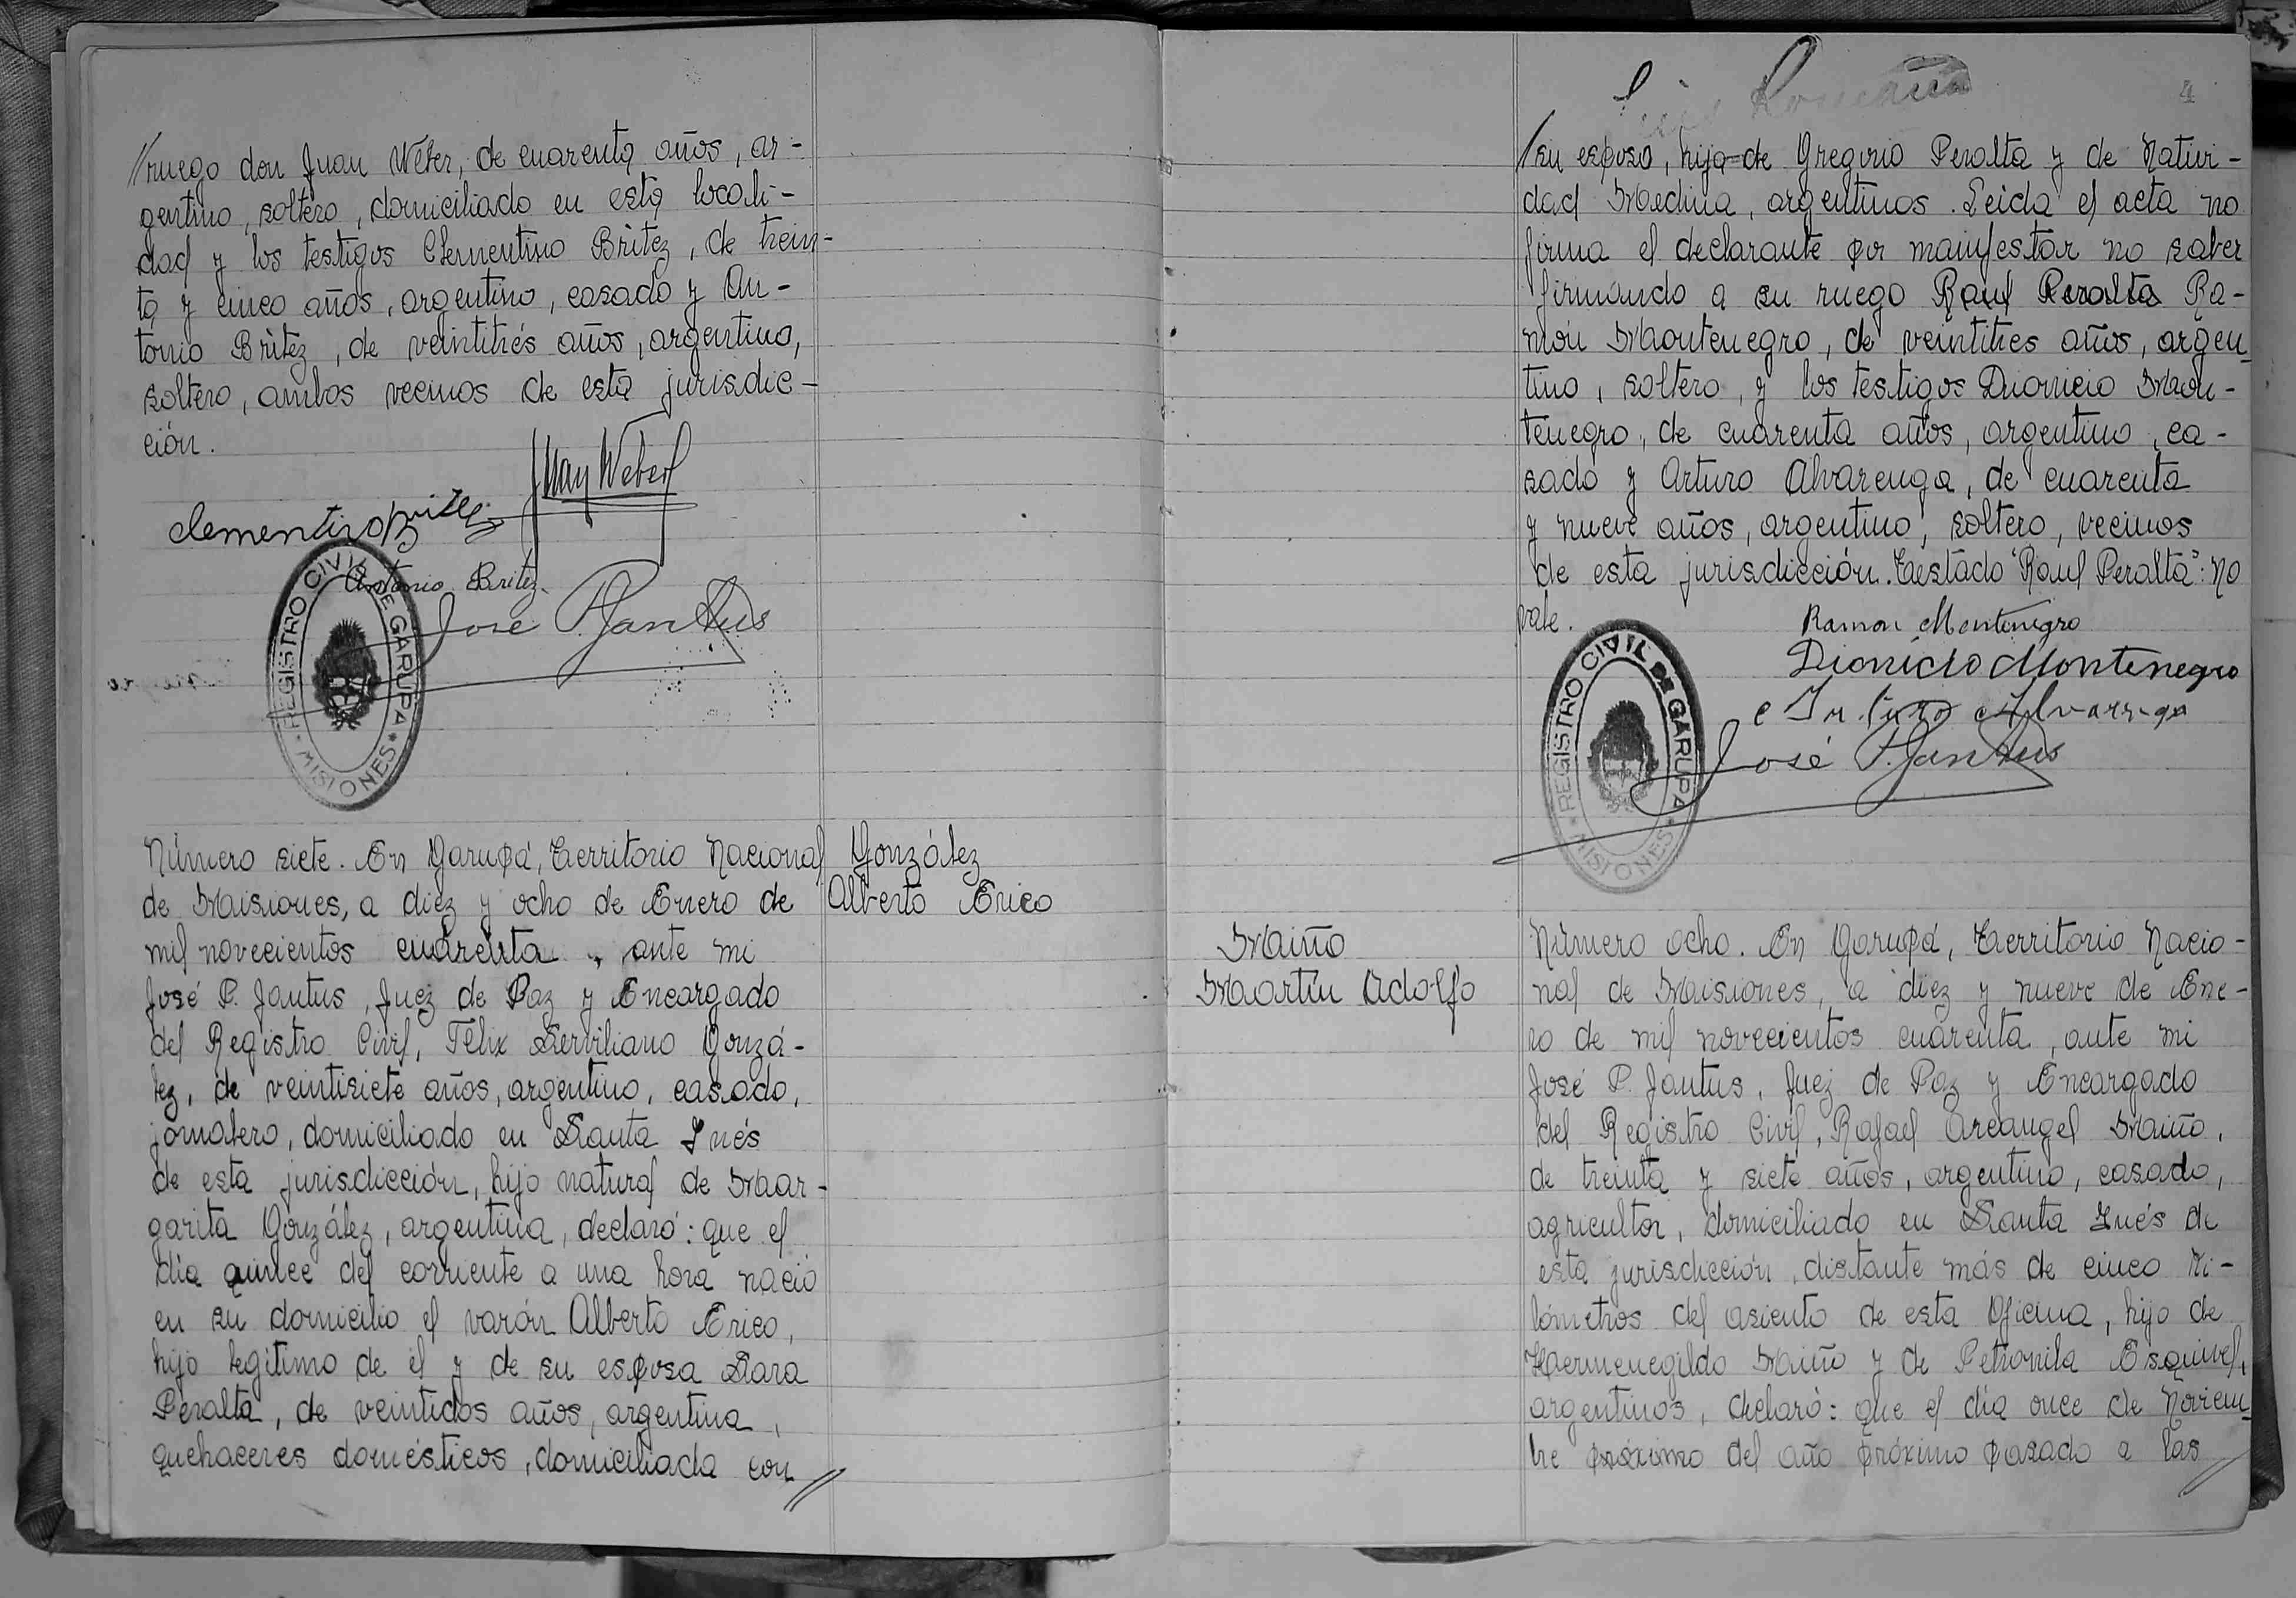 //ruego don Juan Weber, de cuarenta años, ar-
gentino, soltero, domiciliado en esta locali-
dad y los testigos Clementino Britez, de trein-
ta y cinco años, argentino, casado y An-
tonio Britez, de veintitrés años, argentino,
soltero, ambos vecinos de esta jurisdic-
ción.
Juan Weber
Clementino Britez
Antonio Britez
José P. Jantus
REGISTRO CIVIL DE GARUPA
* MISIONES *
Número siete. En Garupá, Territorio Nacional
de Misiones, a diez y ocho de Enero de
mil novecientos cuarenta, ante mi
José P. Jantus, Juez de Paz y Encargado
del Registro Civil, Félix Serviliano Gonzá-
lez, de veintisiete años, argentino, casado,
jornalero, domiciliado en Santa Inés
de esta jurisdicción, hijo natural de Mar-
garita González, argentina, declaró: que el
día quince del corriente a una hora nació
en su domicilio el varón Alberto Erico,
hijo legítimo de el y de su esposa Sara
Peralta, de veintidos años, argentina,
quehaceres domésticos, domiciliada con //
González
Alberto Erico
4
//su esposo, hija de Gregorio Peralta y de Nativi-
dad Medina, argentinos. Leida el acta no
firma el declarante por manifestar no saber
firmando a su ruego Raul Peralta Ra-
món Montenegro, de veintitres años, argen-
tino, soltero, y los testigos Dionicio Mon-
tenegro, de cuarenta años, argentino, ca-
sado y Arturo Alvarenga, de cuarenta
y nueve años, argentino, soltero, vecinos
de esta jurisdicción. Testado "Raul Peralta": no
vale.
Ramon Montenegro
Dionicio Montenegro
Arturo Alvarenga
José P. Jantus
REGISTRO CIVIL DE GARUPA
* MISIONES *
Maiño
Martín Adolfo
Número ocho. En Garupá, Territorio Nacio-
nal de Misiones, a diez y nueve de Ene-
ro de mil novecientos cuarenta, ante mi
José P. Jantus, Juez de Paz y Encargado
del Registro Civil, Rafael Arcangel Maiño,
de treinta y siete años, argentino, casado,
agricultor, domiciliado en Santa Inés de
esta jurisdicción, distante más de cinco ki-
lómetros del asiento de esta Oficina, hijo de
Hermenegildo Maiño y de Petronila Esquivel,
argentinos, declaró: que el día once de Noviem-
bre próximo del año próximo pasado a las //